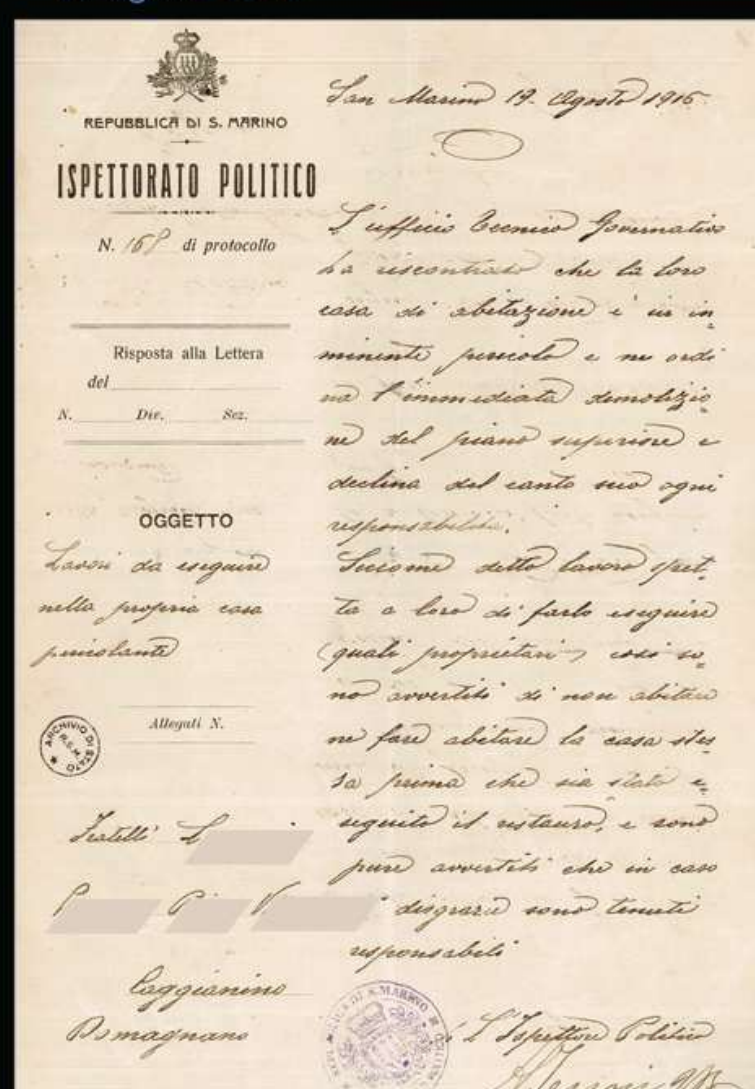 REPUBBLICA DI S. MARINO
ISPETTORATO POLITICO
N. 168 di protocollo
Risposta alla Lettera
del
N. Div. Sez.
OGGETTO
Lavori da eseguire
nella propria casa
pericolante
Allegati N.
ARCHIVIO DI STATO
R.S.M.
Fratelli L
P P V
Caggianino
Romagnano
San Marino 19. Agosto 1916
L'ufficio Tecnico Governativo
ha riscontrato che la loro
casa di abitazione è in im
minente pericolo e ne ordi
na l'immediata demolizio
ne del piano superiore e
declina dal canto suo ogni
responsabilità.
Siccome detto lavoro spet
ta a loro di farlo eseguire
(quali proprietari) così so
no avvertiti di non abitare
ne fare abitare la casa stes
sa prima che sia stato e
seguito il restauro, e sono
pure avvertiti che in caso
disgrazie sono tenuti
responsabili
L'Ispettore Politico